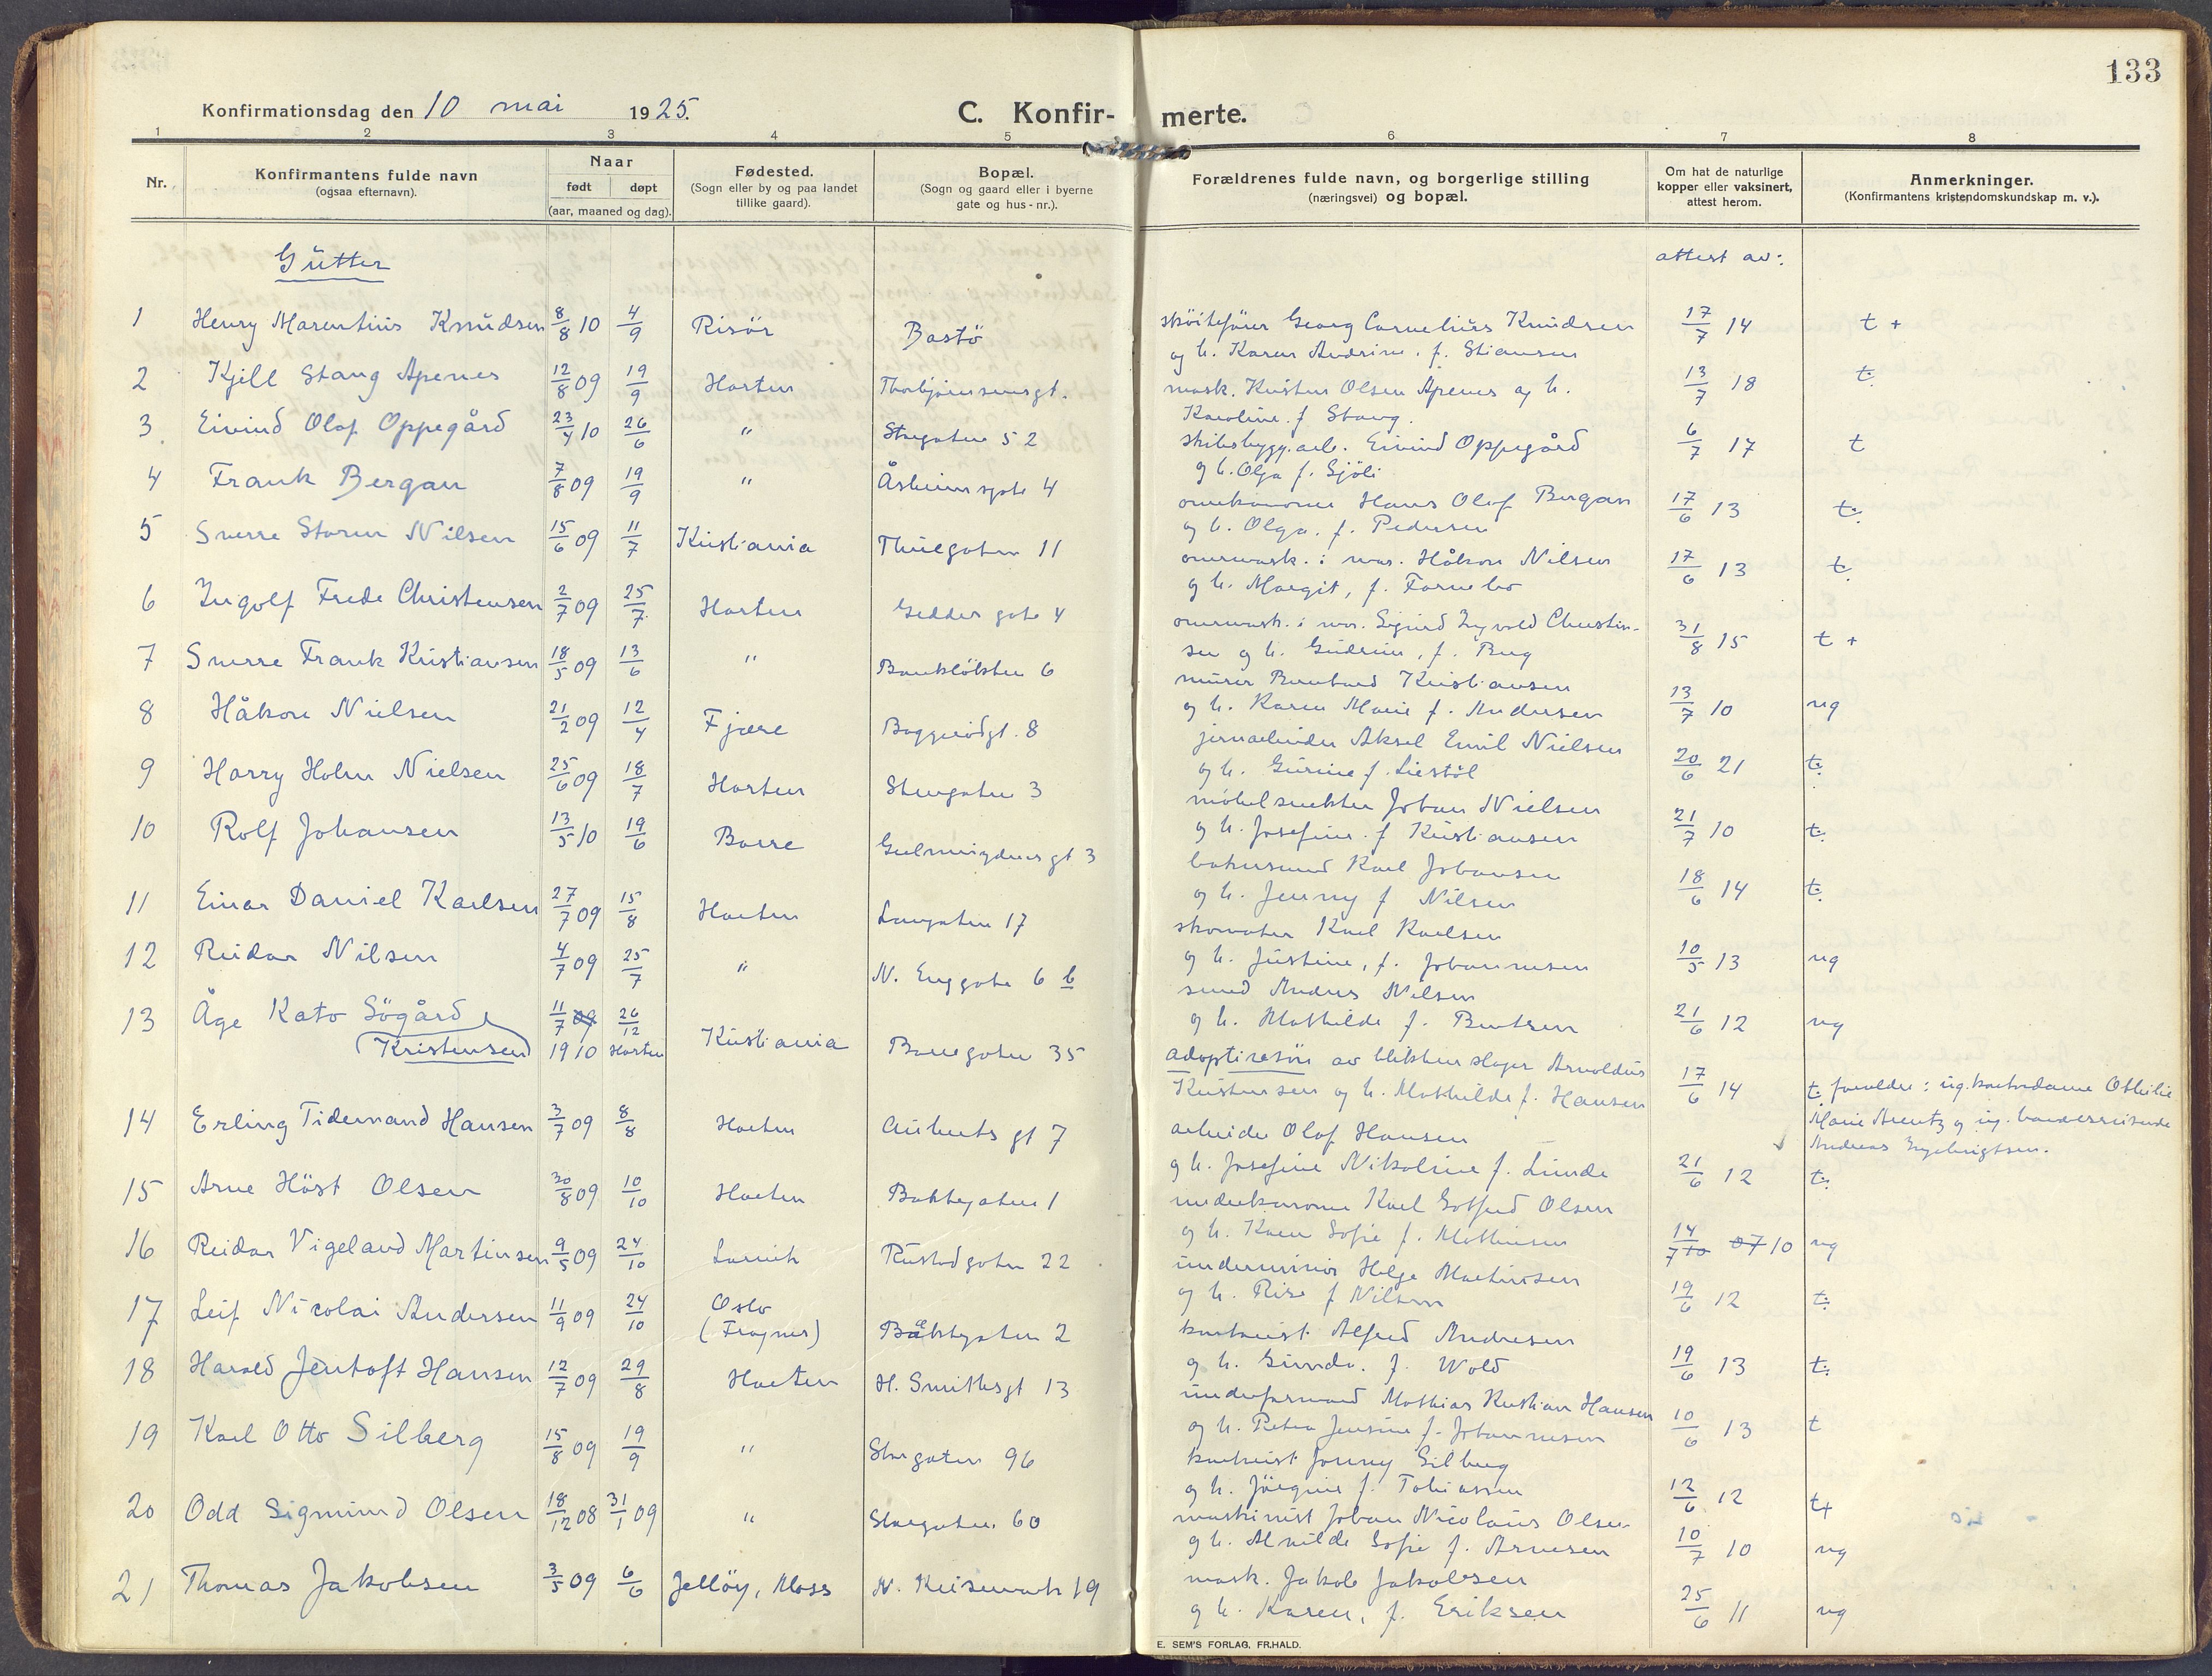 133
Konfirmationsdag den 10 mai 1925.
C. Konfir- merte.
1 2 3 4 5 6 7 8
Nr.
Konfirmantens fulde navn
(ogsaa efternavn).
Naar
født døpt
(aar, maaned og dag).
Fødested.
(Sogn eller by og paa landet
tillike gaard).
Bopæl.
(Sogn og gaard eller i byerne
gate og hus-nr.).
Forældrenes fulde navn, og borgerlige stilling
(næringsvei) og bopæl.
Om hat de naturlige
kopper eller vaksinert,
attest herom.
Anmerkninger.
(Konfirmantens kristendomskundskap m. v.).
Gutter
attest av:
1 Henry Marentius Knudsen 8/8 10 4/9 Risör Bastö
skøitefører Georg Cornelius Knudsen 17/7 14 t +
og h. Karen Andrine. f. Stiansen
2 Kjell Stang Apenes 12/8 09 19/9 Horten Thorbjörnsensgt.
mask. Kristen Olsen Apenes og h. 13/7 18 t.
Karoline. f Stang.
3 Eivind Olaf Oppegård 23/4 10 26/6 " Storgaten 52
skibsbygg.arb. Eivind Oppegård 6/7 17 t
og h. Olga f. Gjöli
4 Frank Bergan 7/8 09 19/9 " Åsheimsgate 4
Hans Olaf Bergan 17/6 13 t.
og h. Olga. f. Pedersen
5 Sverre Storm Nilsen 15/6 09 11/7 Kristiania Thuegaten 11
overmask. i mar. Håkon Nilsen 17/6 13 t.
og h. Margit, f. Fornebo
6 Ingolf Frede Christensen 2/7 09 25/7 Horten Geddes gate 4
overmask. i mar. Sigurd Ingvald Christen- 31/8 15 t +
sen og h. Gudrun, f. Berg
7 Sverre Frank Kristiansen 18/5 09 13/6 " Bankløkken 6
murer Bernhard Kristiansen
og h. Karen Marie f. Andersen 13/7 10 ng
8 Håkon Nielsen 21/2 09 12/4 Fjære Baggerödgt. 8
jernarbeider Aksel Emil Nielsen
og h. Gurine f. Liestöl 20/6 21 t.
9 Harry Holm Nielsen 25/6 09 18/7 Horten Stengaten 3
möbelsnekker Johan Nielsen
og h. Josefine. f Kristiansen 21/7 10 t.
10 Rolf Johansen 13/5 10 19/6 Borre gt 3
Karl Johansen
og h. Jenny f Nilsen 18/6 14 t.
11 Einar Daniel Karlsen 27/7 09 15/8 Horten Langaten 17
skomaker Karl Karlsen
og h. Justine, f. Johannesen 10/5 13 ng
12 Reidar Nilsen 4/7 09 25/7 " N. Enggate 6 b
smed Anders Nilsen
og h. Mathilde f. Berntsen 21/6 12 ng
13 Åge Kato Sögård 11/7 09 26/12
(Kristensen) 1910 Horten Kristiania Borregaten 35
adoptivsön av blikkenslager Arnoldus 17/6 14
Kristensen og h. Mathilde f. Hansen
t. forældre: ug. kontordame Othilie
Marie Arentz og ug. handelsreisende
Andreas Ingebrigtsen.
14 Erling Tidemand Hansen 3/7 09 8/8 Horten Auberts gt 7
arbeider Olaf Hansen
og h. Josefine Nikoline f. Lunde 21/6 12 t.
15 Arne Höst Olsen 30/8 09 10/10 Horten Bakkegaten 1
underkanoner Karl Gotfred Olsen
og h. Karen Sofie f. Mathisen 14/7 10 07 10 ng
16 Reidar Vigeland Martinsen 9/5 09 24/10 Larvik Rustadgaten 22
underminør Helge Martinsen
og h. f Nilsen 19/6 12 t.
17 Leif Nicolai Andersen 11/9 09 24/10 Oslo
(Frogner) Bakkegaten 2
kontorist Alfred Andresen
og h. Gunda. f. Wold 19/6 13 t.
18 Harald Jentoft Hansen 12/7 09 29/8 Horten H. Smithsgt 13
Mathias Kristian Hansen
og h. Petra Jensine f. Johannesen 10/6 13 t
19 Karl Otto Silberg 15/8 09 19/9 " Storgaten 96
kontorist Jonny Silberg
og h. Jörgine f. Tobiassen 12/6 12 t+
20 Odd Sigmund Olsen 18/12 08 31/1 09 " Storgaten. 60
maskinist Johan Nicolaus Olsen
og h. Alvilde Sofie f. Arnesen 10/7 10 ng
21 Thomas Jakobsen 3/5 09 6/6 Jellöy, Moss N. Keisemark 19
mask. Jakob Jakobsen
og h. Karen, f. Eriksen 25/6 11 ng
E. SEM'S FORLAG, FR.HALD.